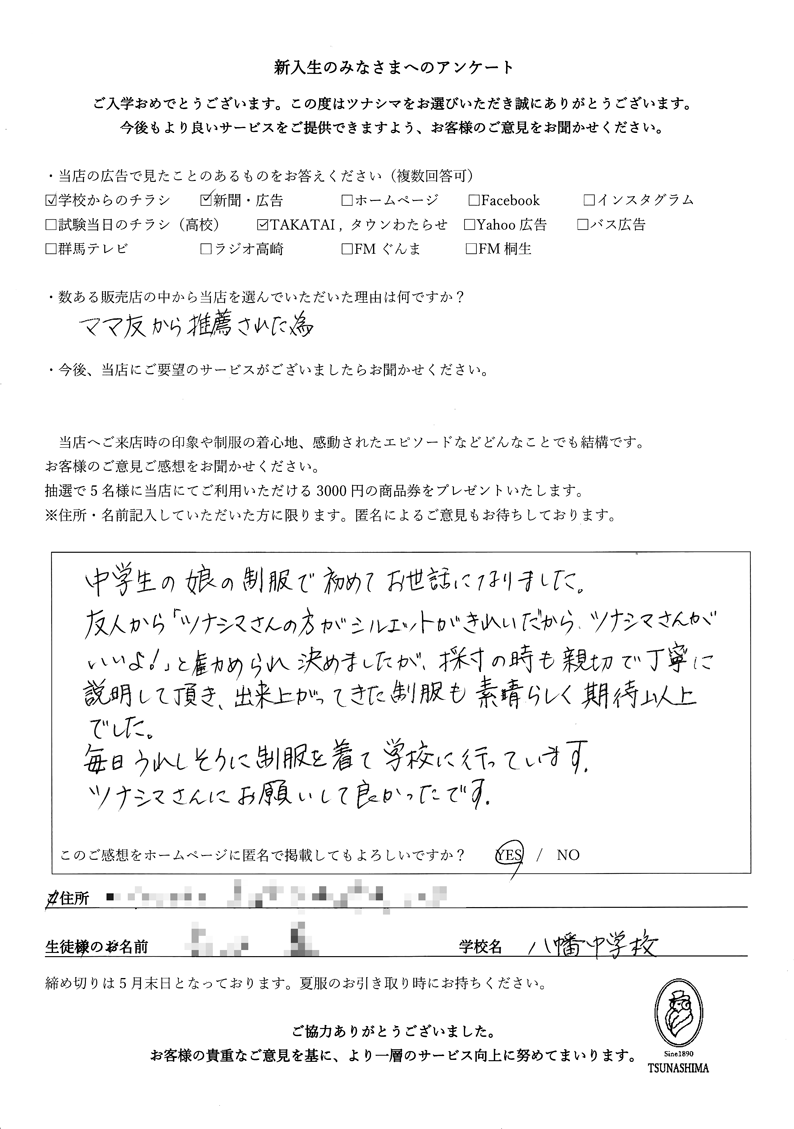 新入生のみなさまへのアンケート
ご入学おめでとうございます。この度はツナシマをお選びいただき誠にありがとうございます。
今後もより良いサービスをご提供できますよう、お客様のご意見をお聞かせください。
・当店の広告で見たことのあるものをお答えください（複数回答可）
☑学校からのチラシ ☑新聞・広告 □ホームページ □Facebook □インスタグラム
□試験当日のチラシ（高校） ☑TAKATAI，タウンわたらせ □Yahoo 広告 □バス広告
□群馬テレビ □ラジオ高崎 □FM ぐんま □FM 桐生
・数ある販売店の中から当店を選んでいただいた理由は何ですか？
ママ友から推薦された為
・今後、当店にご要望のサービスがございましたらお聞かせください。
当店へご来店時の印象や制服の着心地、感動されたエピソードなどどんなことでも結構です。
お客様のご意見ご感想をお聞かせください。
抽選で 5 名様に当店にてご利用いただける 3000 円の商品券をプレゼントいたします。
※住所・名前記入していただいた方に限ります。匿名によるご意見もお待ちしております。
中学生の娘の制服で初めてお世話になりました。
友人から「ツナシマさんの方がシルエットがきれいだから、ツナシマさんが
いいよ！」と勧められ決めましたが、採寸の時も親切で丁寧に
説明して頂き、出来上がってきた制服も素晴らしく期待以上
でした。
毎日うれしそうに制服を着て学校に行っています。
ツナシマさんにお願いして良かったです。
このご感想をホームページに匿名で掲載してもよろしいですか？ YES / NO
ご住所
生徒様のお名前 学校名 八幡中学校
締め切りは 5 月末日となっております。夏服のお引き取り時にお持ちください。
ご協力ありがとうございました。
お客様の貴重なご意見を基に、より一層のサービス向上に努めてまいります。
Sine1890
TSUNASHIMA